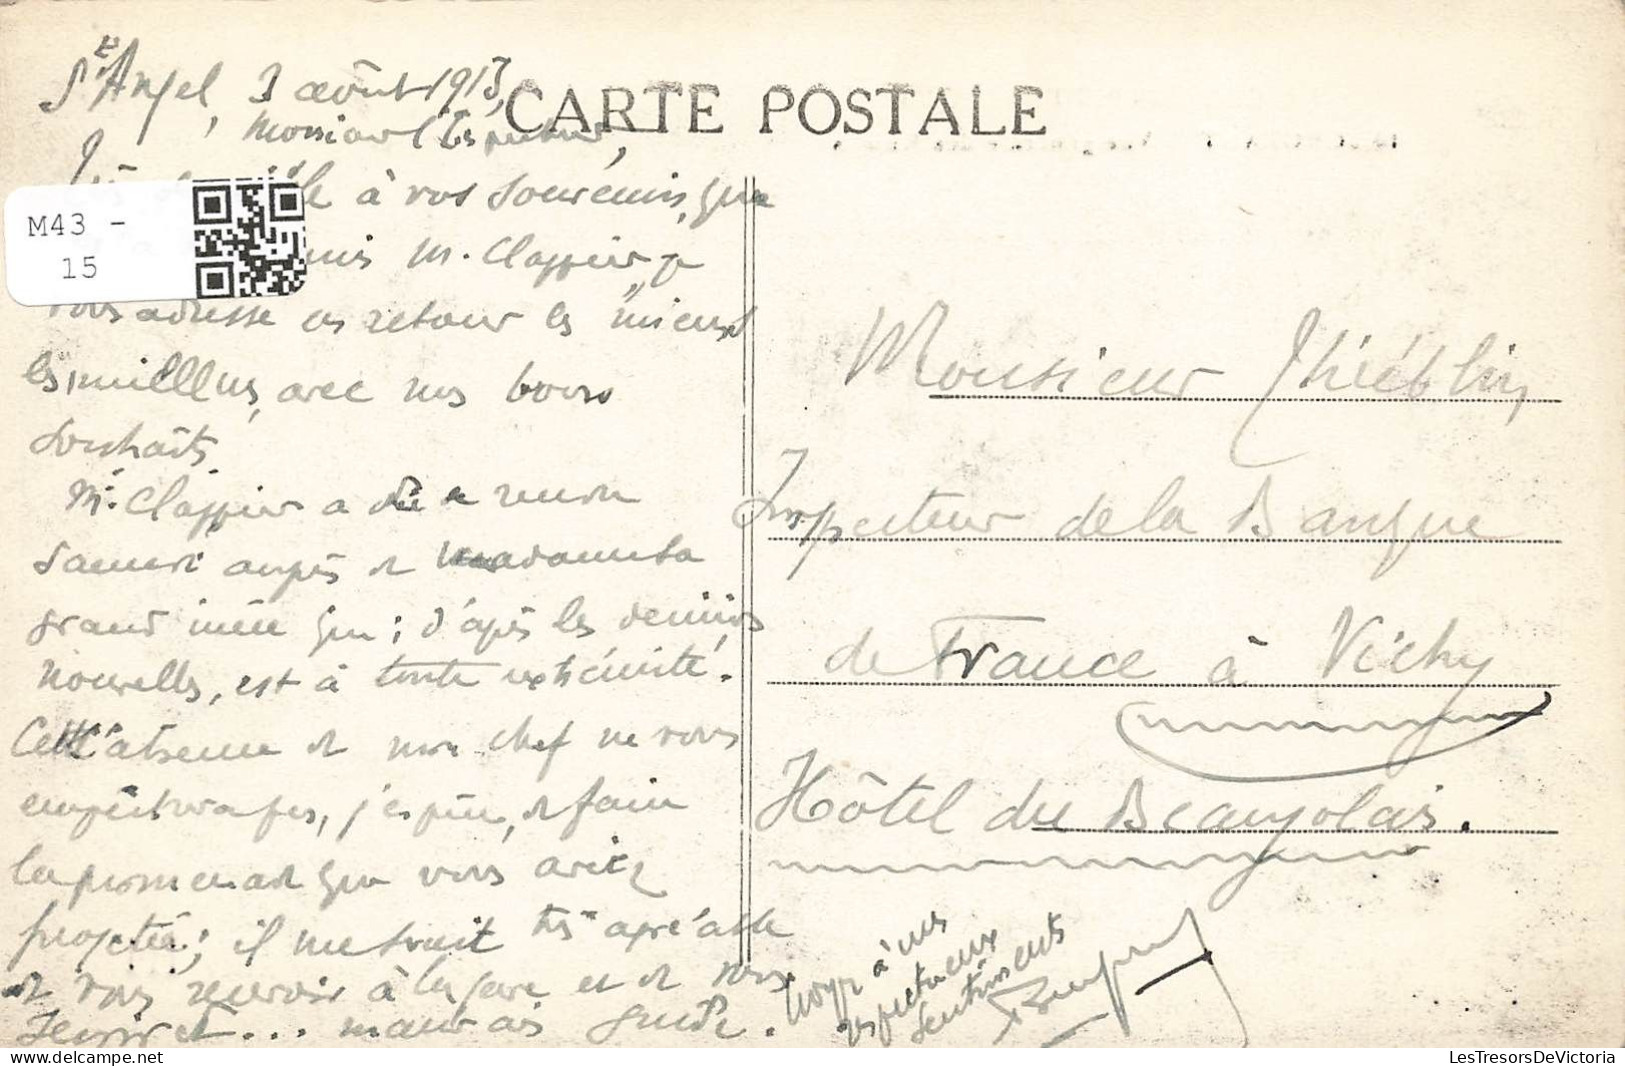 CARTE POSTALE
St Angel, 3 août 1913,
Monsieur l'Inspecteur,
à vos souvenirs, que
M. Clappier, je
vous adresse en retour les mieux
les meilleurs, avec mes bons
souhaits
M. Clappier a dû se rendre
samedi auprès de Madame sa
grand mère qui, d'après les dernières
nouvelles, est à toute extrémité.
Cette absence de mon chef ne vous
empêchera pas, j'espère, de faire
la promenade que vous aviez
projetée; il me serait très agréable
de vous recevoir à la gare et de vous
servir de... mauvais guide.
Croyez à mes
respectueux
sentiments
Monsieur Thiéblin,
Inspecteur de la Banque
de France à Vichy
Hôtel du Beaujolais.
M43 -
15
LesTresorsDeVictoria